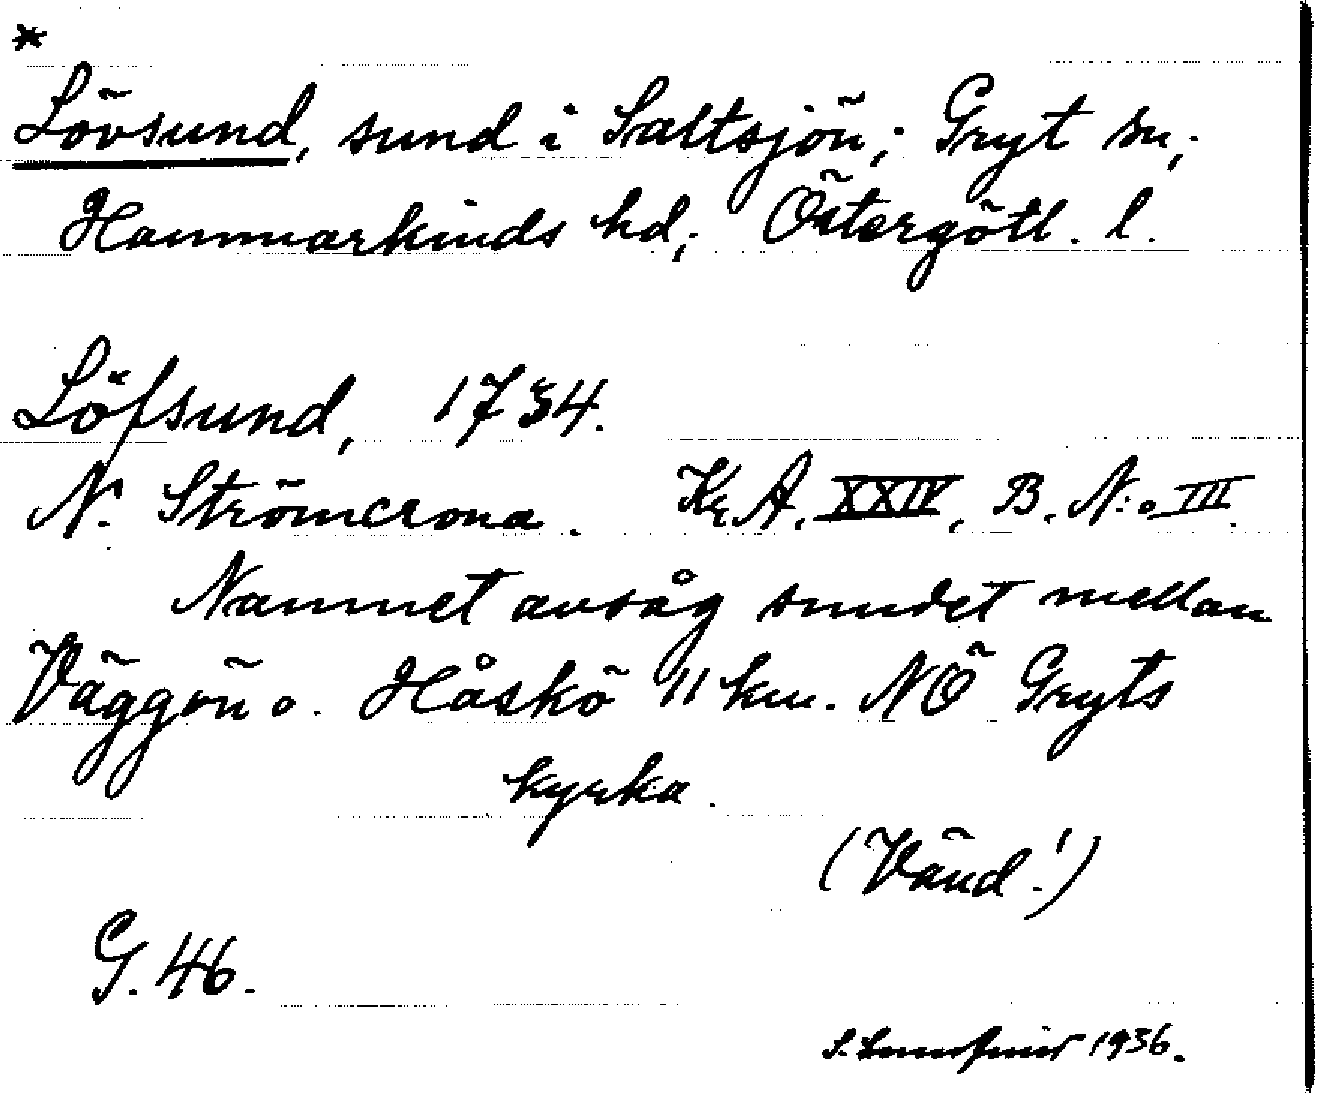 *
Lövsund, sund i Saltsjön; Gryt sn;
Hammarkinds hd; Östergötl. l.
Löfsund, 1734.
N. Strömcrona. Kr. A. XXIV, B. N:o III.
Namnet avsåg sundet mellan
Väggön o. Håskö 11 km. NÖ Gryts
kyrka.
(Vänd!)
G. 46.
S. 1936.